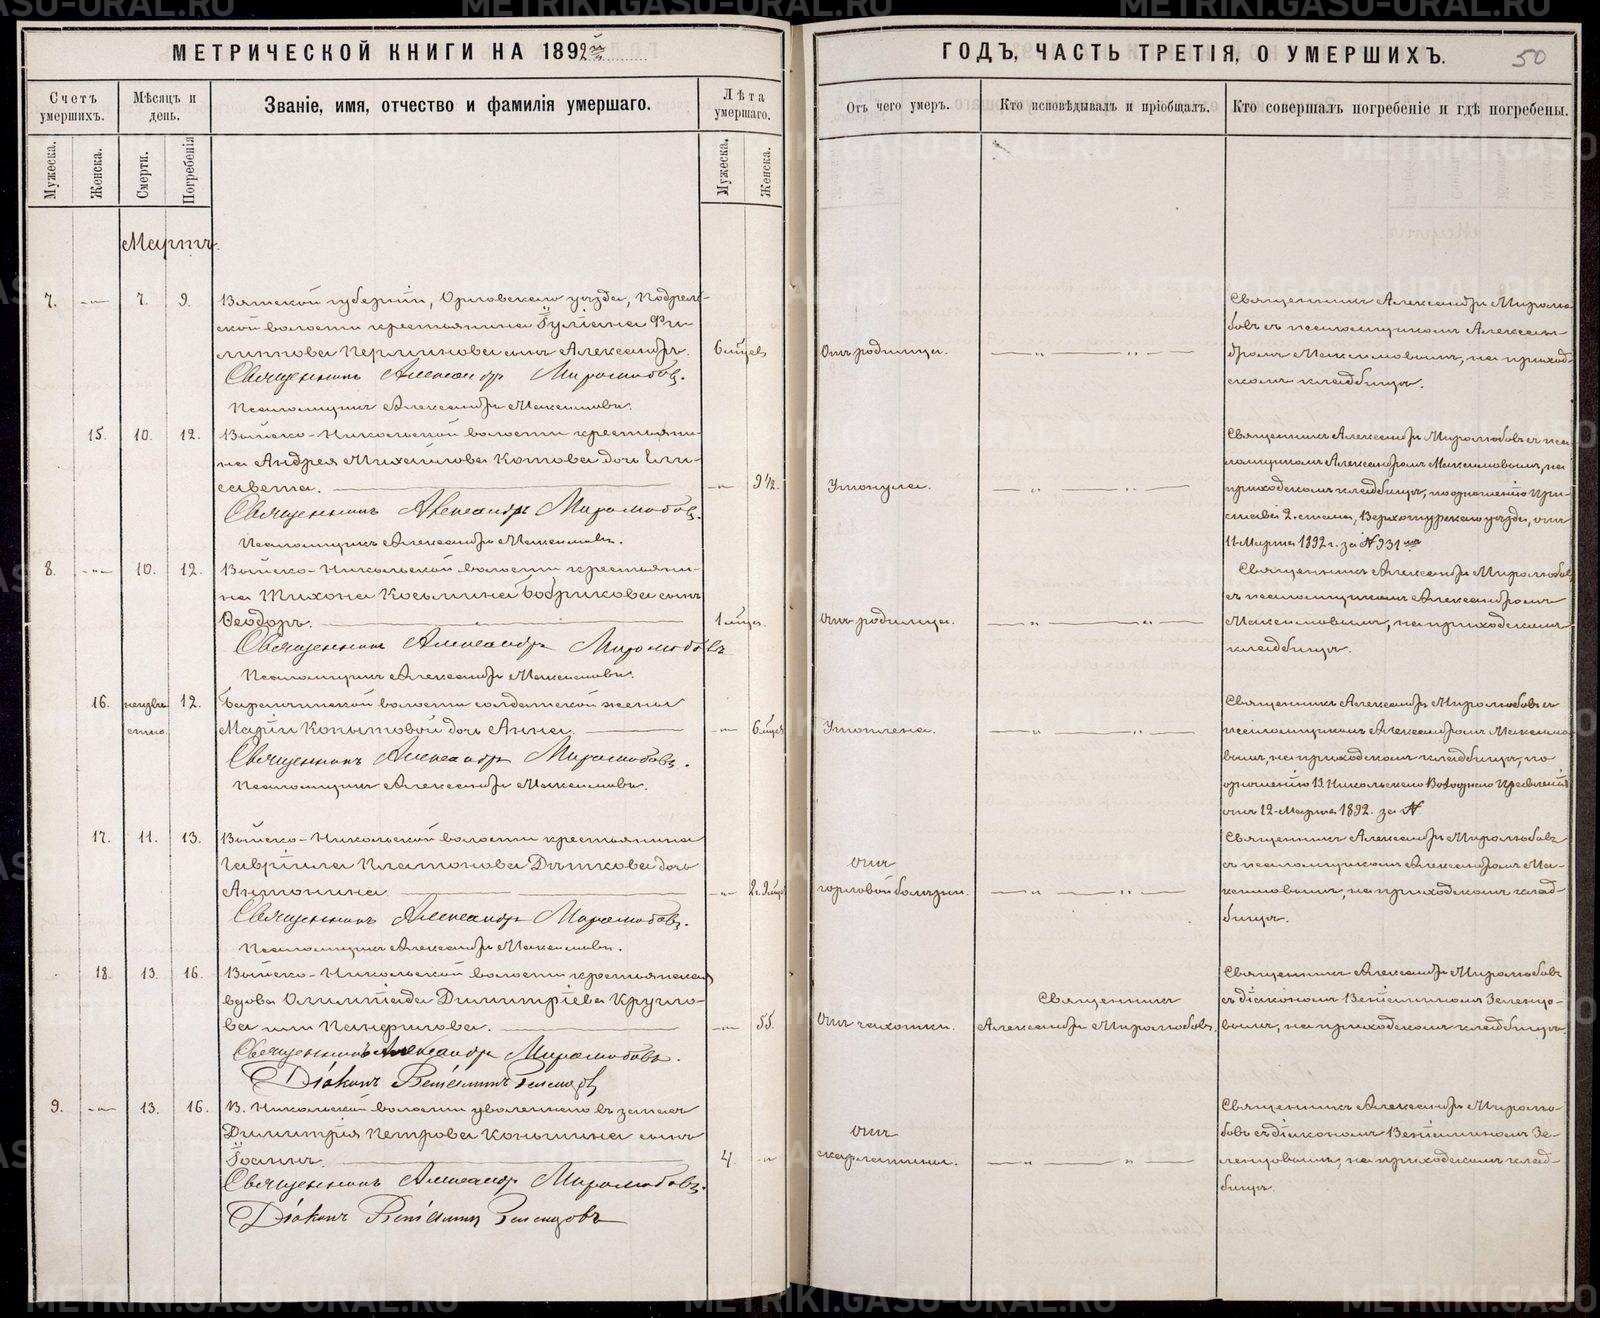 МЕТРИЧЕСКОЙ КНИГИ НА 1892й
ГОДЪ, ЧАСТЬ ТРЕТІЯ, О УМЕРШИХЪ.
50
Счетъ умершихъ.
Мѣсяцъ и день.
Званіе, имя, отчество и фамилія умершаго.
Лѣта умершаго.
Отъ чего умеръ.
Кто исповѣдывалъ и пріобщалъ.
Кто совершалъ погребеніе и гдѣ погребены.
Мужеска.
Женска.
Смерти.
Погребенія
Мужеска.
Женска.
Мартъ.
7. 7. 9.
Вятской губерніи, Орловскаго уѣзда, Подрель-
ской волости крестьянина Іуліана Фи-
липпова Перминова сынъ Александръ.
Священникъ Александръ Миролюбовъ.
Псаломщикъ Александръ Максимовъ.
6 мѣсев
Отъ родимца.
Священникъ Александръ Миролю-
бовъ съ псаломщикомъ Алексан-
дромъ Максимовымъ, на приход-
скомъ кладбищѣ.
15. 10. 12.
Выйско-Никольской волости крестьяни-
на Андрея Михайлова Котова дочь Ели-
савета.
Священникъ Александръ Миролюбовъ.
Псаломщикъ Александръ Максимовъ.
9½.
Утонула.
Священникъ Александръ Миролюбовъ съ пса-
ломщикомъ Александромъ Максимовымъ, на
приходскомъ кладбищѣ, по отношенію При-
става 2. стана, Верхотурскаго уѣзда, отъ
11 Марта 1892 г. за № 931мъ
8. 10. 12.
Выйско-Никольской волости крестьяни-
на Тихона Косьмина Бобрикова сынъ
Ѳеодоръ.
Священникъ Александръ Миролюбовъ
Псаломщикъ Александръ Максимовъ.
1 мѣсец.
Отъ родимца.
Священникъ Александръ Миролюбовъ
съ псаломщикомъ Александромъ
Максимовымъ, на приходскомъ
кладбищѣ.
16. неизвѣ- 12.
стно.
Баранчинской волости солдатской жены
Маріи Копытовой дочь Анна.
Священникъ Александръ Миролюбовъ.
Псаломщикъ Александръ Максимовъ.
6 мѣсев
Утоплена.
Священникъ Александръ Миролюбовъ съ
псаломщикомъ Александромъ Максимо-
вымъ, на приходскомъ кладбищѣ, по
отношенію В. Никольскаго Волостнаго Правленія
отъ 12 Марта 1892. за №
17. 11. 13.
Выйско-Никольской волости крестьянина
Гавріила Платонова Дѣткова дочь
Антонина.
Священникъ Александръ Миролюбовъ.
Псаломщикъ Александръ Максимовъ.
2 г. 9 мѣс
Отъ
горловой болѣзни.
Священникъ Александръ Миролюбовъ
съ псаломщикомъ Александромъ Ма-
ксимовымъ, на приходскомъ клад-
бищѣ.
18. 13. 16.
Выйско-Никольской волости крестьянская
вдова Олимпіада Димитріева Кругло-
ва или Панфилова.
Священникъ Александръ Миролюбовъ.
Діаконъ Веніаминъ Зеленцовъ
55.
Отъ чахотки.
Священникъ
Александръ Миролюбовъ.
Священникъ Александръ Миролюбовъ
съ діакономъ Веніаминомъ Зеленцо-
вымъ, на приходскомъ кладбищѣ.
9. 13. 16.
В. Никольской волости уволеннаго въ запасъ
Димитрія Петрова Коньшина сынъ
Іоаннъ.
Священникъ Александръ Миролюбовъ.
Діаконъ Веніаминъ Зеленцовъ
4.
Отъ
скарлатины.
Священникъ Александръ Миролю-
бовъ съ діакономъ Веніаминомъ Зе-
ленцовымъ, на приходскомъ клад-
бищѣ.
METRIKI.GASO-URAL.RU